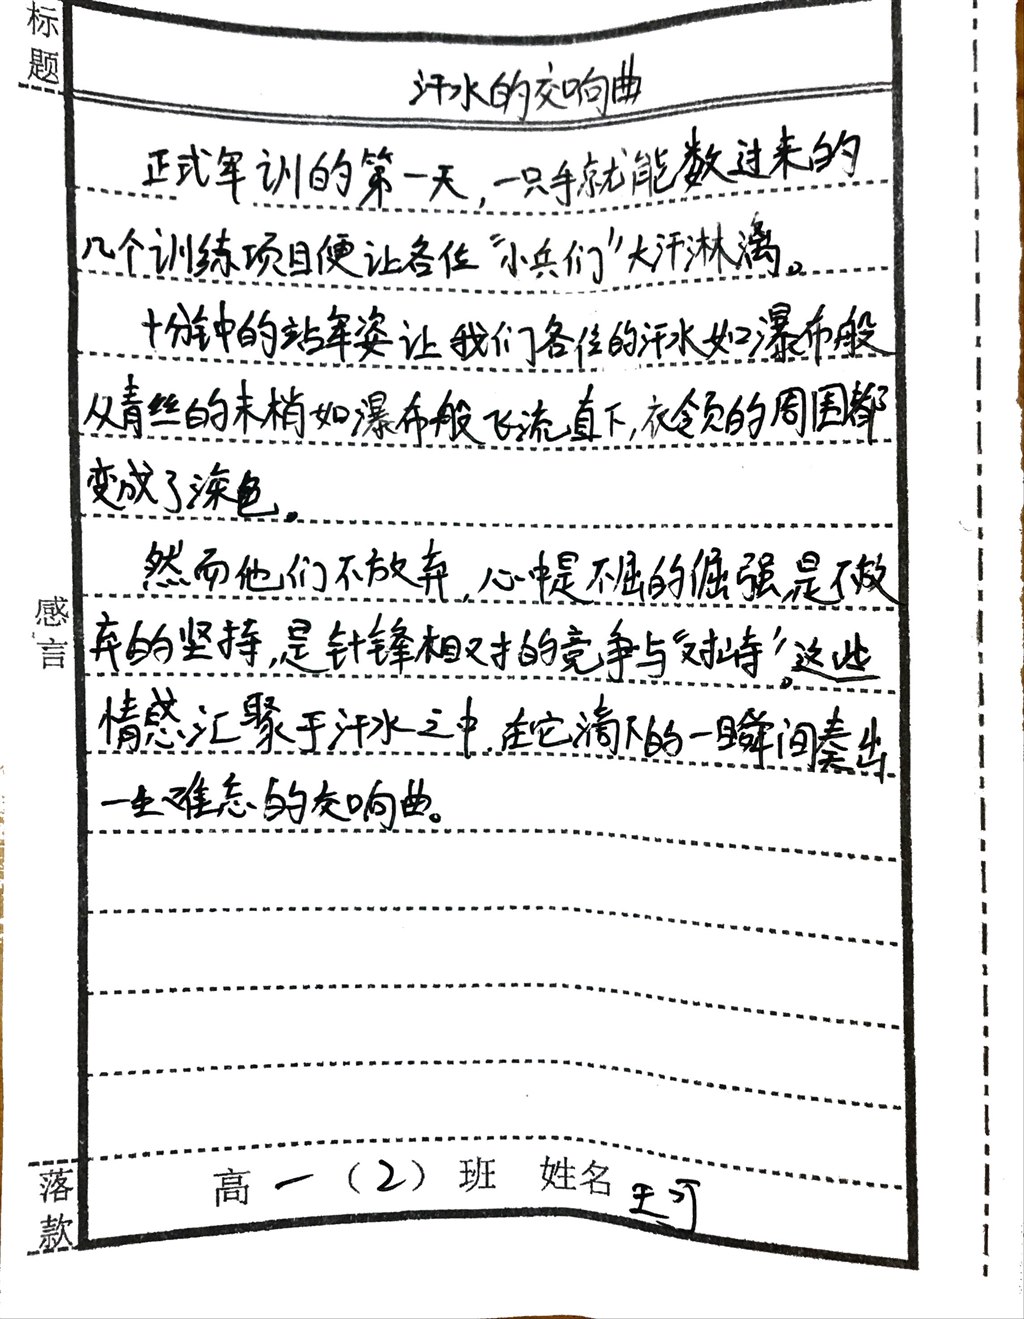 标题
汗水的交响曲
正式军训的第一天，一只手就能数过来的
几个训练项目便让各位“小兵们”大汗淋漓。
十分钟的站军姿让我们各位的汗水如瀑布般
从青丝的末梢如瀑布般飞流直下，衣领的周围都
变成了深色。
然而他们不放弃，心中是不屈的倔强，是不放
弃的坚持，是针锋相对的竞争与“对峙”。这些
情感汇聚于汗水之中，在它滴下的一瞬间奏出
一生难忘的交响曲。
感言
落款
高一（2）班 姓名